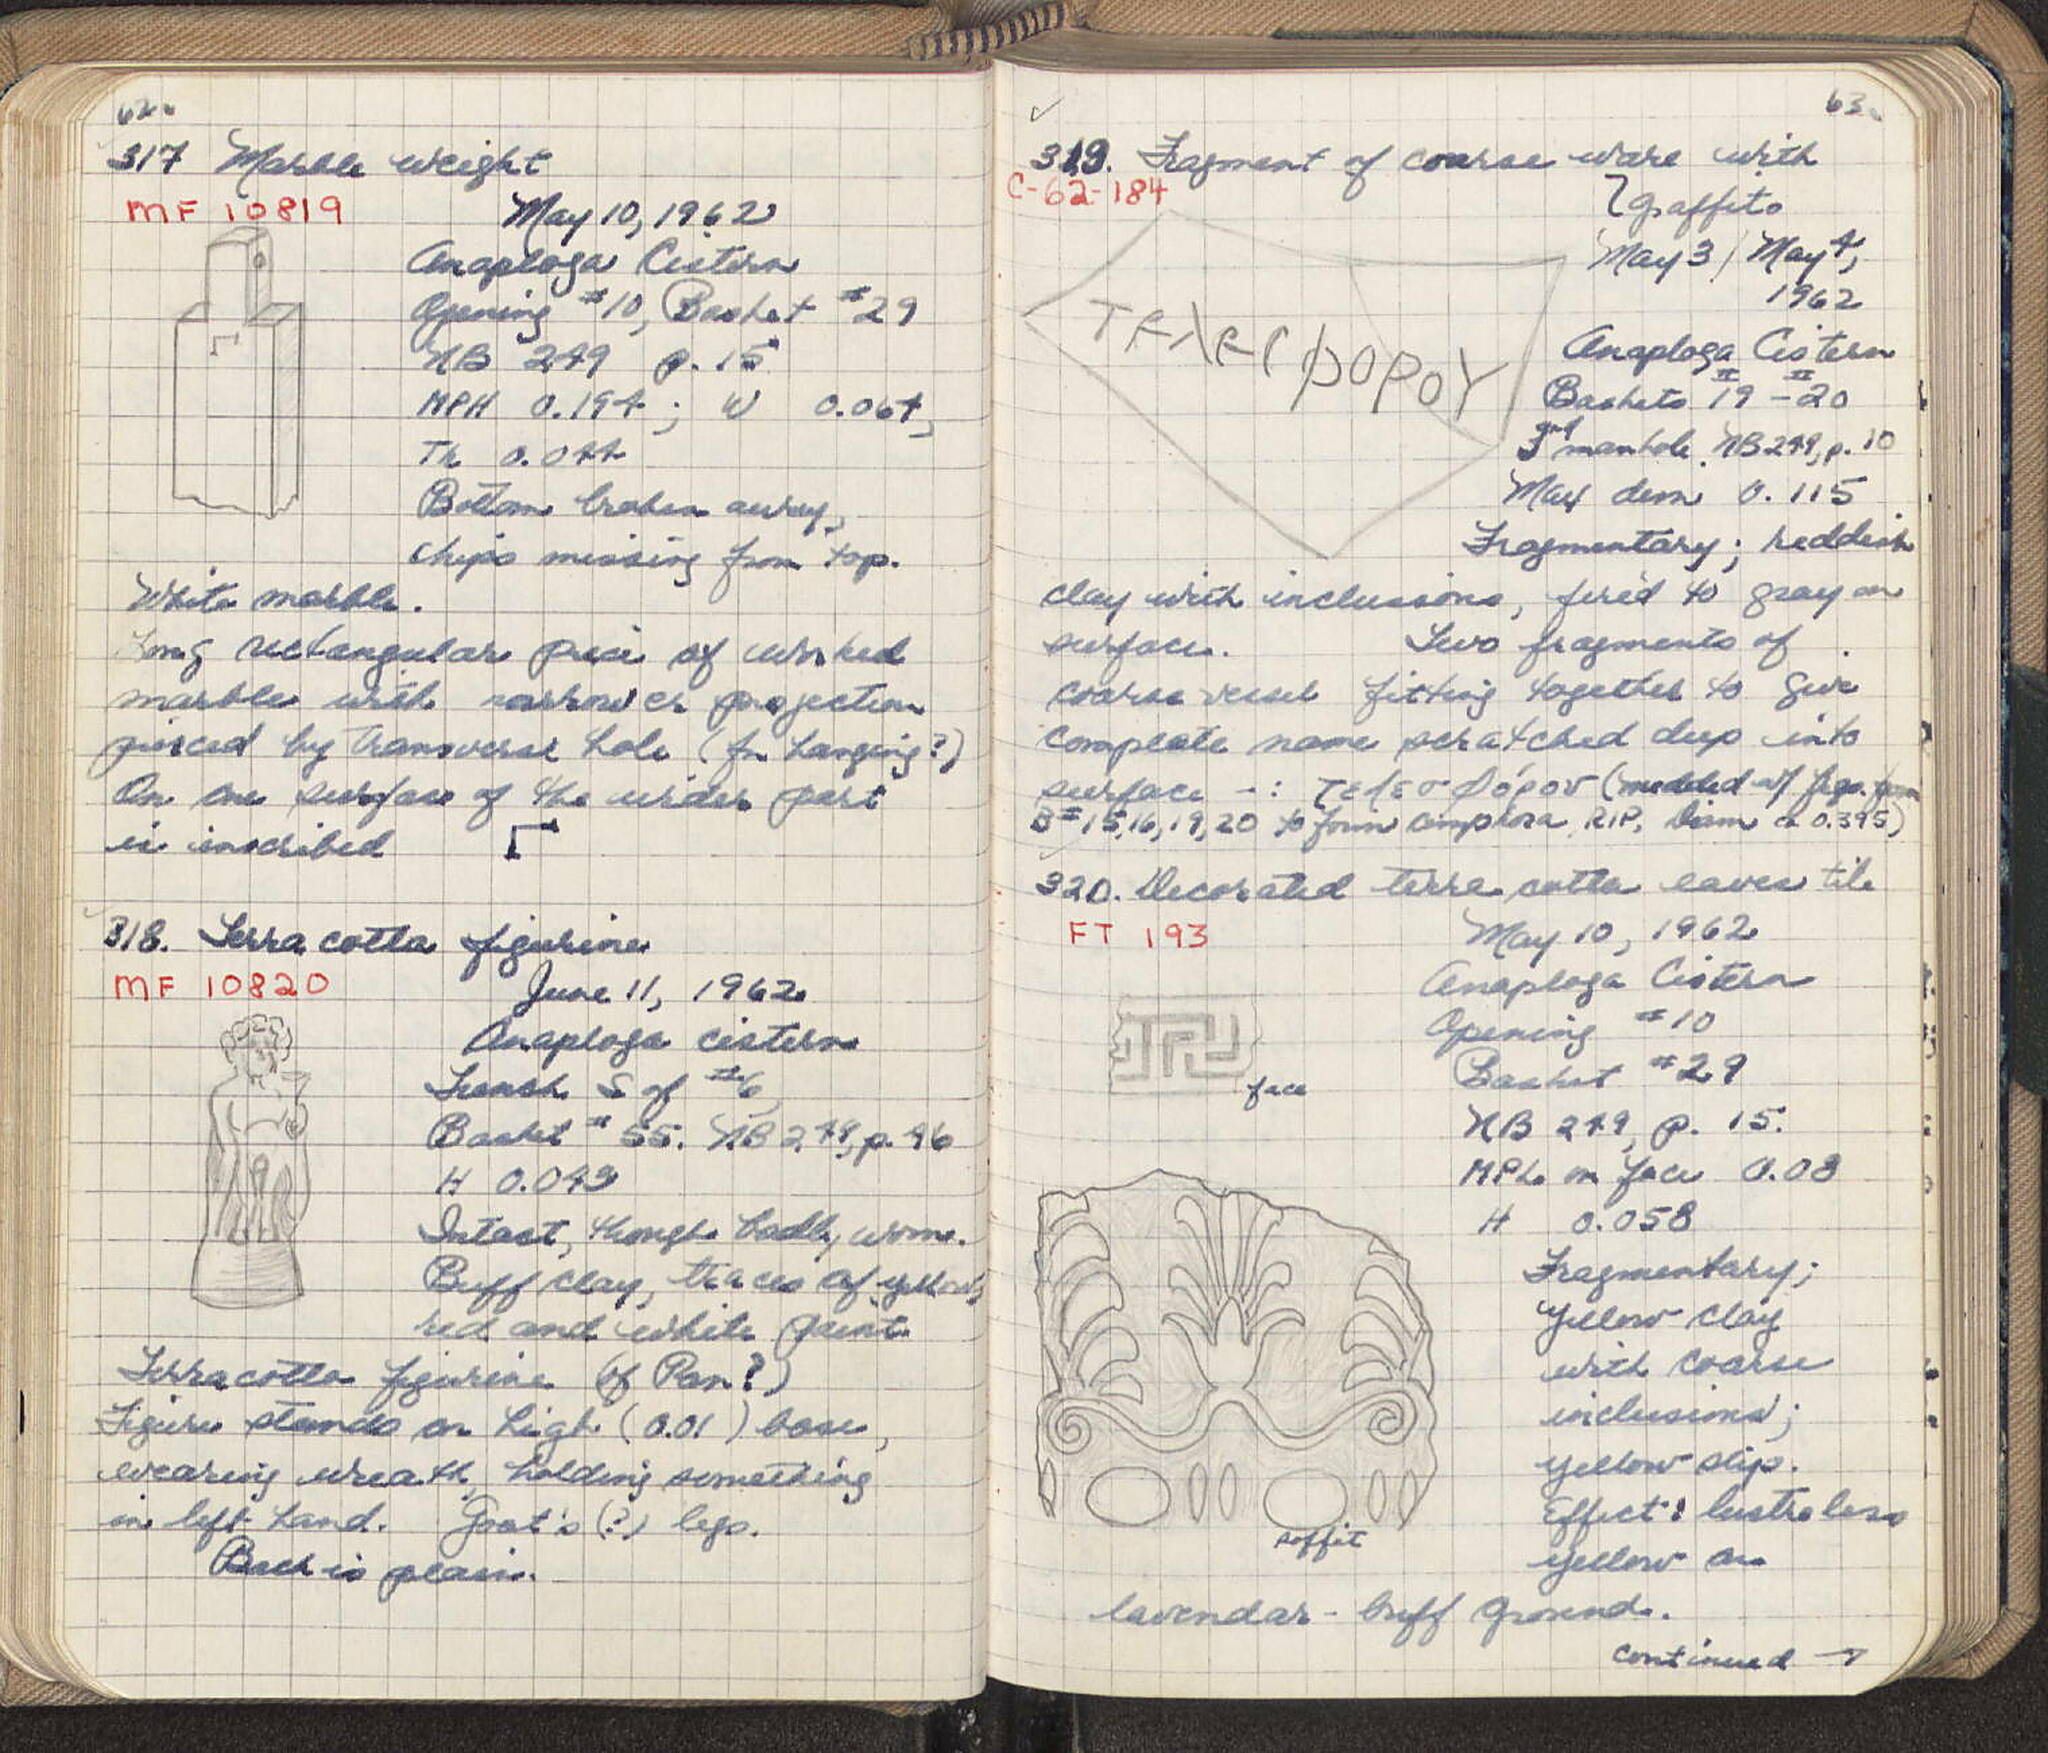 62.
317 Marble weight
MF 10819
May 10, 1962
Anaploga Cistern
Opening #10, Basket #29
NB 249 p. 15
MPH 0.194; W 0.064,
Th 0.044
Bottom broken away,
chips missing from top.
White marble.
Long rectangular piece of worked
marble with narrower projection
pierced by transverse hole (for hanging?)
On one surface of the wider part
is inscribed Γ
318. Terra cotta figurine
MF 10820
June 11, 1962
Anaploga cistern
Trench S of #6
Basket #55. NB 249, p. 46
H 0.043
Intact, though badly worn.
Buff clay, traces of yellow,
red and white paint.
Terracotta figurine (of Pan?)
Figure stands on high (0.01) base,
wearing wreath, holding something
in left hand. Goat's (?) legs.
Back is plain.
63.
319. Fragment of coarse ware with
graffito
C-62-184
May 3 / May 4,
1962
ΤΕΛΕCΦΟΡΟΥ
Anaploga Cistern
Baskets #19 - #20
3rd manhole NB 249, p. 10
Max dim 0.115
Fragmentary; reddish
clay with inclusions, fired to gray on
surface. Two fragments of
coarse vessel fitting together to give
complete name scratched deep into
surface -: Τελεσφόρου (mended w/ frgs. from
B# 15, 16, 19, 20 to form amphora, RIP, Diam ca 0.395)
320. Decorated terra cotta eaves tile
FT 193
May 10, 1962
Anaploga Cistern
Opening #10
Basket #29
face
NB 249, p. 15.
MPL on face 0.08
H 0.058
Fragmentary;
Yellow clay
with coarse
inclusions;
yellow slip.
Effect: lustreless
yellow on
soffit
lavendar - buff ground.
continued →